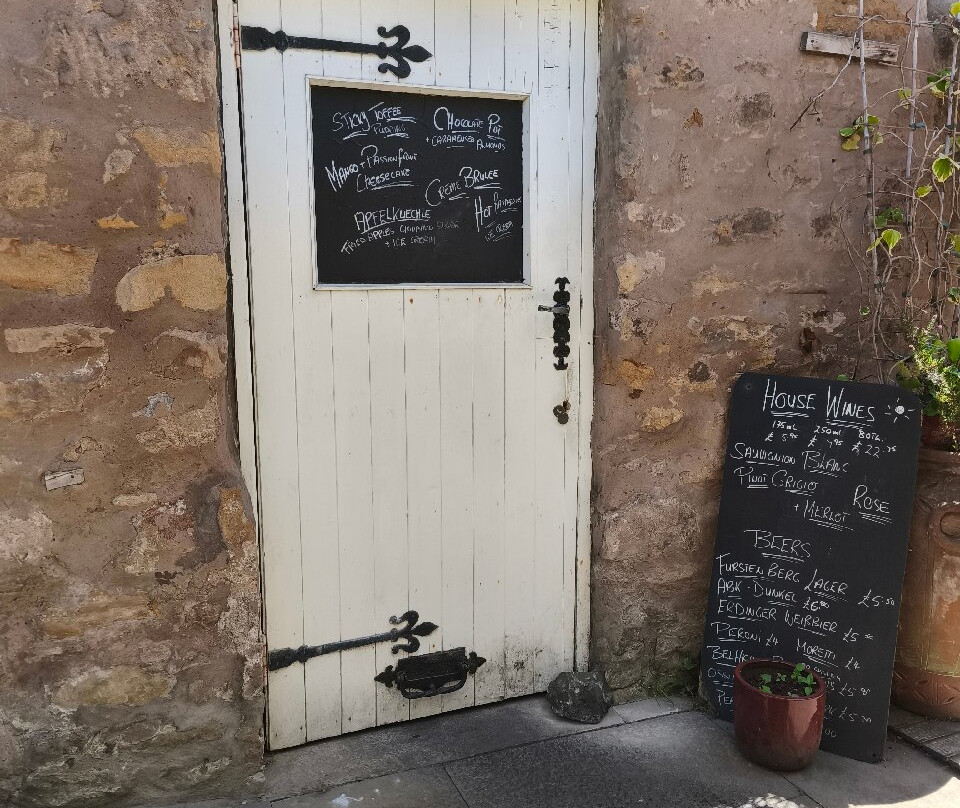 STICKY TOFFEE
PUDDING
CHOCOLATE POT
+ CARAMELISED ALMONDS
MANGO + PASSIONFRUIT
CHEESECAKE
CRÈME BRULEE
APFELKUECHLE
FRIED APPLES CINNAMON SUGAR
+ ICE CREAM
HOT
ICE CREAM
HOUSE WINES
175ML 250ML BOTTL
£22.
SAUVIGNION BLANC
PINOT GRIGIO
ROSE
+ MERLOT
BEERS
FURSTENBERG LAGER £5.50
ARK-DUNKEL £6.00
ERDINGER WEIßBIER £5
PERONI £4 MORETTI £4
BELH